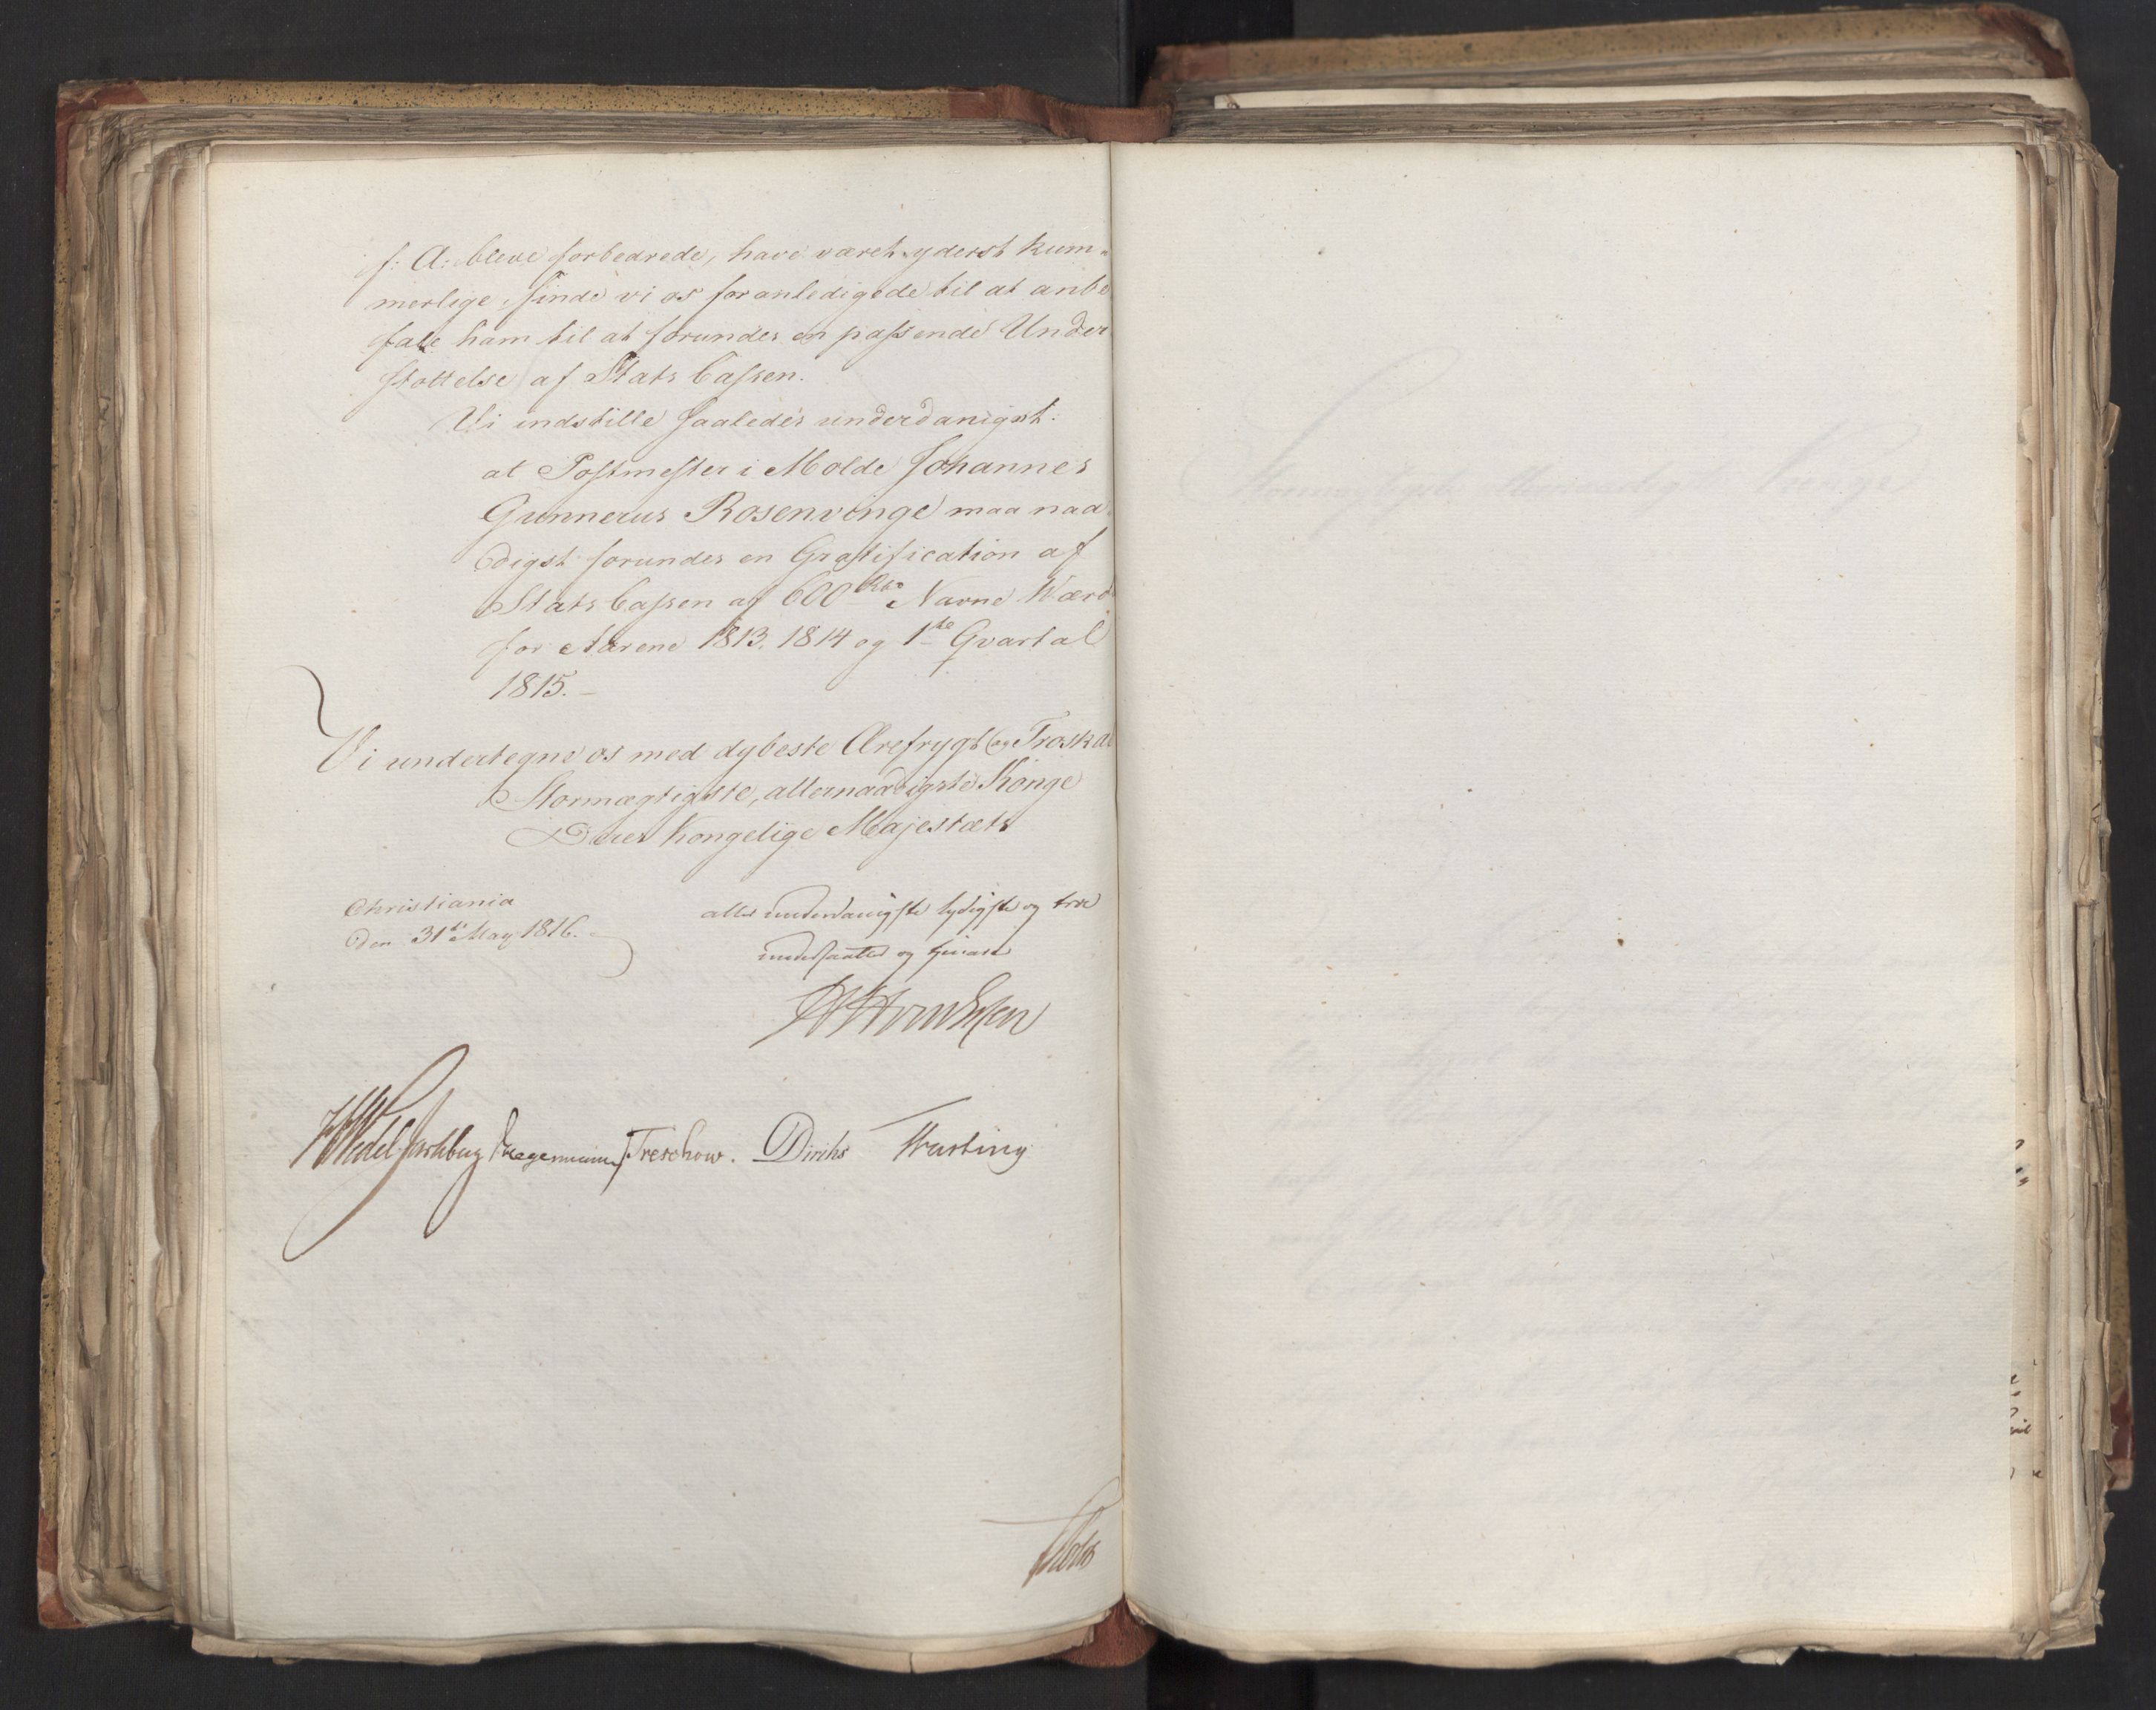 f: A: bleve forbedrede, have været yderst kum-
merlige, finde vi os foranledigede til at anbe
fale ham til at forundes en passende Under
støttelse af Stats Cassen.
Vi indstille saaledes underdanigst:
at Postmester i Molde Johannes
Gunnerus Rosenvinge maa naa-
digst forundes en Gratification af
Stats Cassen af 600 Rbd Navne Værd
for Aarene 1813, 1814 og 1ste Qvartal
1815.-
Vi undertegne os med dybeste Ærefrygt og Troskab
Stormægtigste, allernaadigste Konge
Deres Kongelige Majestæts
Christiania
den 31te May 1816.
allerunderdanigste lydigste og troe
undersaatter og tienere
HWedel Jarlsberg Krogh Treschow. Diriks Hasting